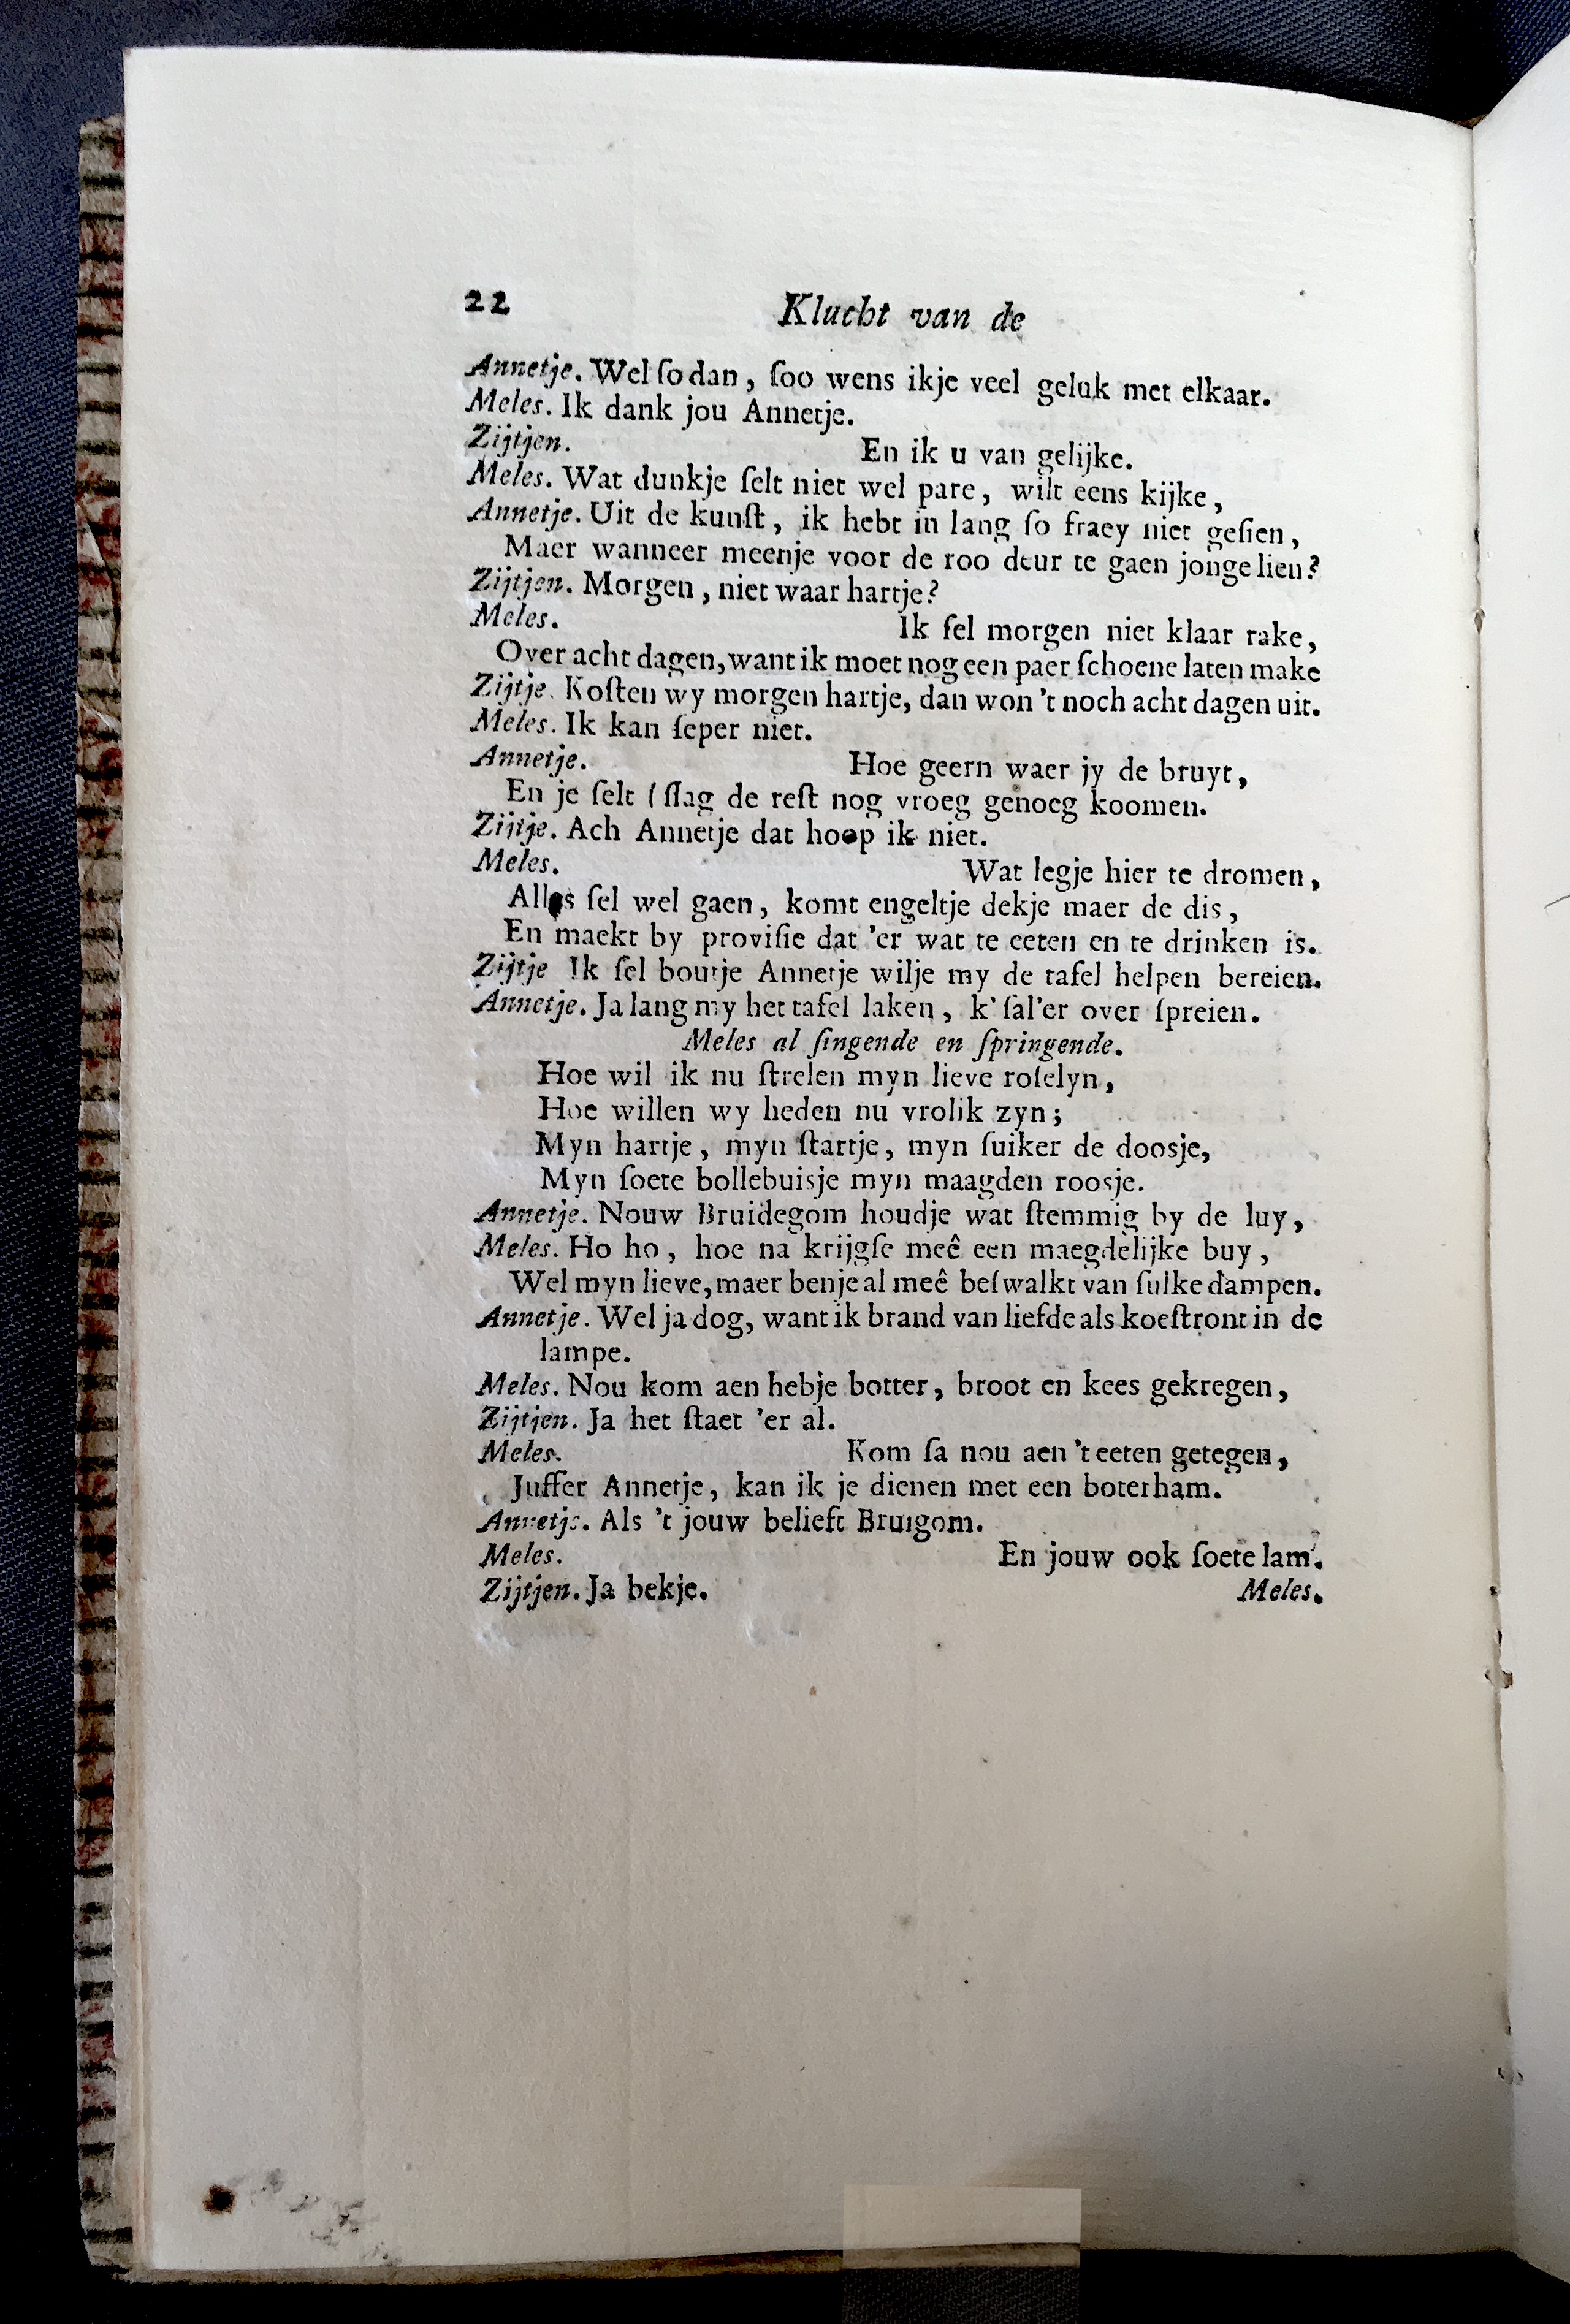 22 Klucht van de
Annetje. Wel ſo dan, ſoo wens ikje veel geluk met elkaar.
Meles. Ik dank jou Annetje.
Zijtjen. En ik u van gelijke.
Meles. Wat dunkje ſelt niet wel pare, wilt eens kijke,
Annetje. Uit de kunſt, ik hebt in lang ſo fraey niet geſien,
Maer wanneer meenje voor de roo deur te gaen jonge lien?
Zijtjen. Morgen, niet waar hartje?
Meles. Ik ſel morgen niet klaar rake,
Over acht dagen, want ik moet nog een paer ſchoene laten make
Zijtje. Koſten wy morgen hartje, dan won 't noch acht dagen uit.
Meles. Ik kan ſeper niet.
Annetje. Hoe geern waer jy de bruyt,
En je ſelt ſſlag de reſt nog vroeg genoeg koomen.
Zijtje. Ach Annetje dat hoop ik niet.
Meles. Wat legje hier te dromen,
Alles ſel wel gaen, komt engeltje dekje maer de dis,
En maekt by proviſie dat 'er wat te eeten en te drinken is.
Zijtje Ik ſel boutje Annetje wilje my de tafel helpen bereien.
Annetje. Ja lang my het tafel laken, k' ſal'er over ſpreien.
Meles al ſingende en ſpringende.
Hoe wil ik nu ſtrelen myn lieve roſelyn,
Hoe willen wy heden nu vrolik zyn;
Myn hartje, myn ſtartje, myn ſuiker de doosje,
Myn ſoete bollebuisje myn maagden roosje.
Annetje. Nouw Bruidegom houdje wat ſtemmig by de luy,
Meles. Ho ho, hoe na krijgſe meê een maegdelijke buy,
Wel myn lieve, maer benje al meê beſwalkt van ſulke dampen.
Annetje. Wel ja dog, want ik brand van liefde als koeſtront in de
lampe.
Meles. Nou kom aen hebje botter, broot en kees gekregen,
Zijtjen. Ja het ſtaet 'er al.
Meles. Kom ſa nou aen 't eeten getegen,
Juffer Annetje, kan ik je dienen met een boterham.
Annetje. Als 't jouw belieft Bruigom.
Meles. En jouw ook ſoete lam.
Zijtjen. Ja bekje. Meles.